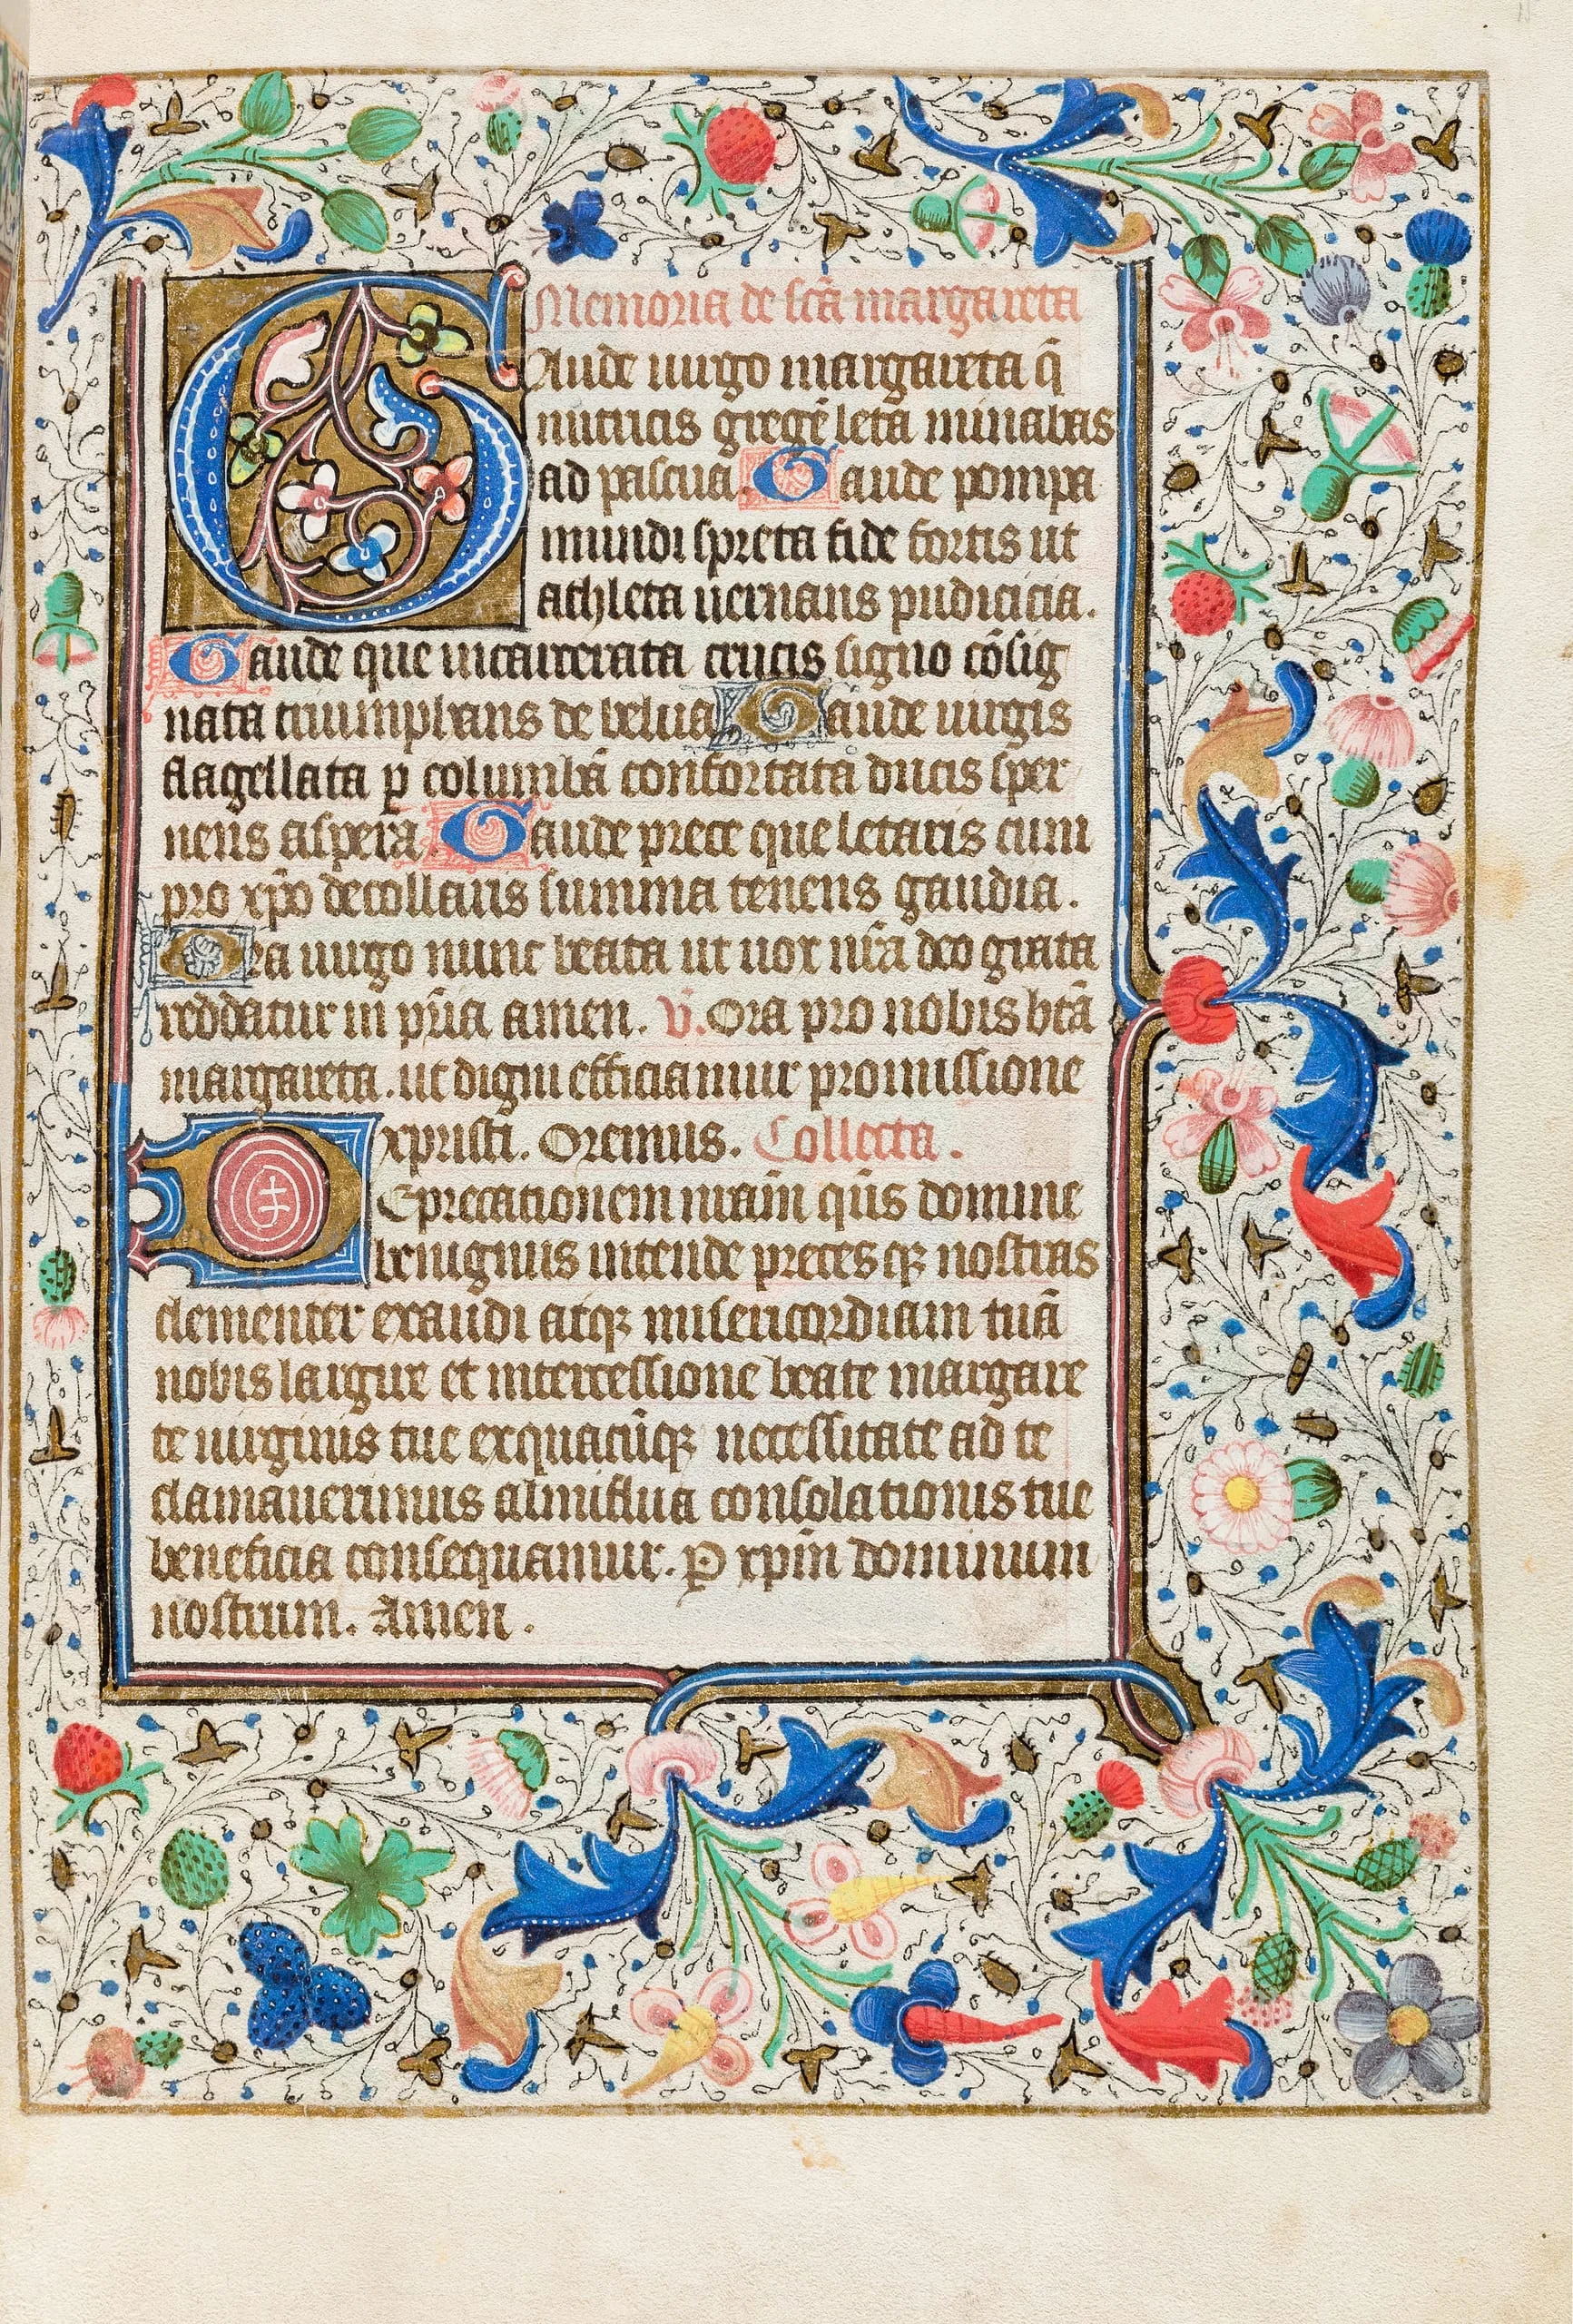 Memoria de sc̄a margareta
Gaude uirgo margareta q̄
nutricis gregē leta minabas
ad pascua. Gaude pompa
mundi spreta fide fortis ut
athleta uernans pudicicia.
Gaude que incarcerata crucis signo cōsig
nata triumphans de belua Gaude uirgis
flagellata ꝑ columbā confortata ducis sper
nens aspera. Gaude prece que letaris cum
pro xp̄o decollaris summa tenens gaudia.
Ora uirgo nunc beata ut uox nr̄a deo grata
reddatur in pr̄ia amen. ℣. Ora pro nobis btā
margareta. ut digni efficiamur promissione
xpristi. Oremus. Collecta.
Deprecationem nr̄am qs̄ domine
benignus intende preces qꝫ nostras
clementer exaudi atqꝫ misericordiam tuā
nobis largire et intercessione beate margare
te uirginis tue exquacūqꝫ necessitate ad te
clamauerimus almiflua consolationis tue
beneficia consequamur. Ꝑ xp̄m dominum
nostrum. Amen.